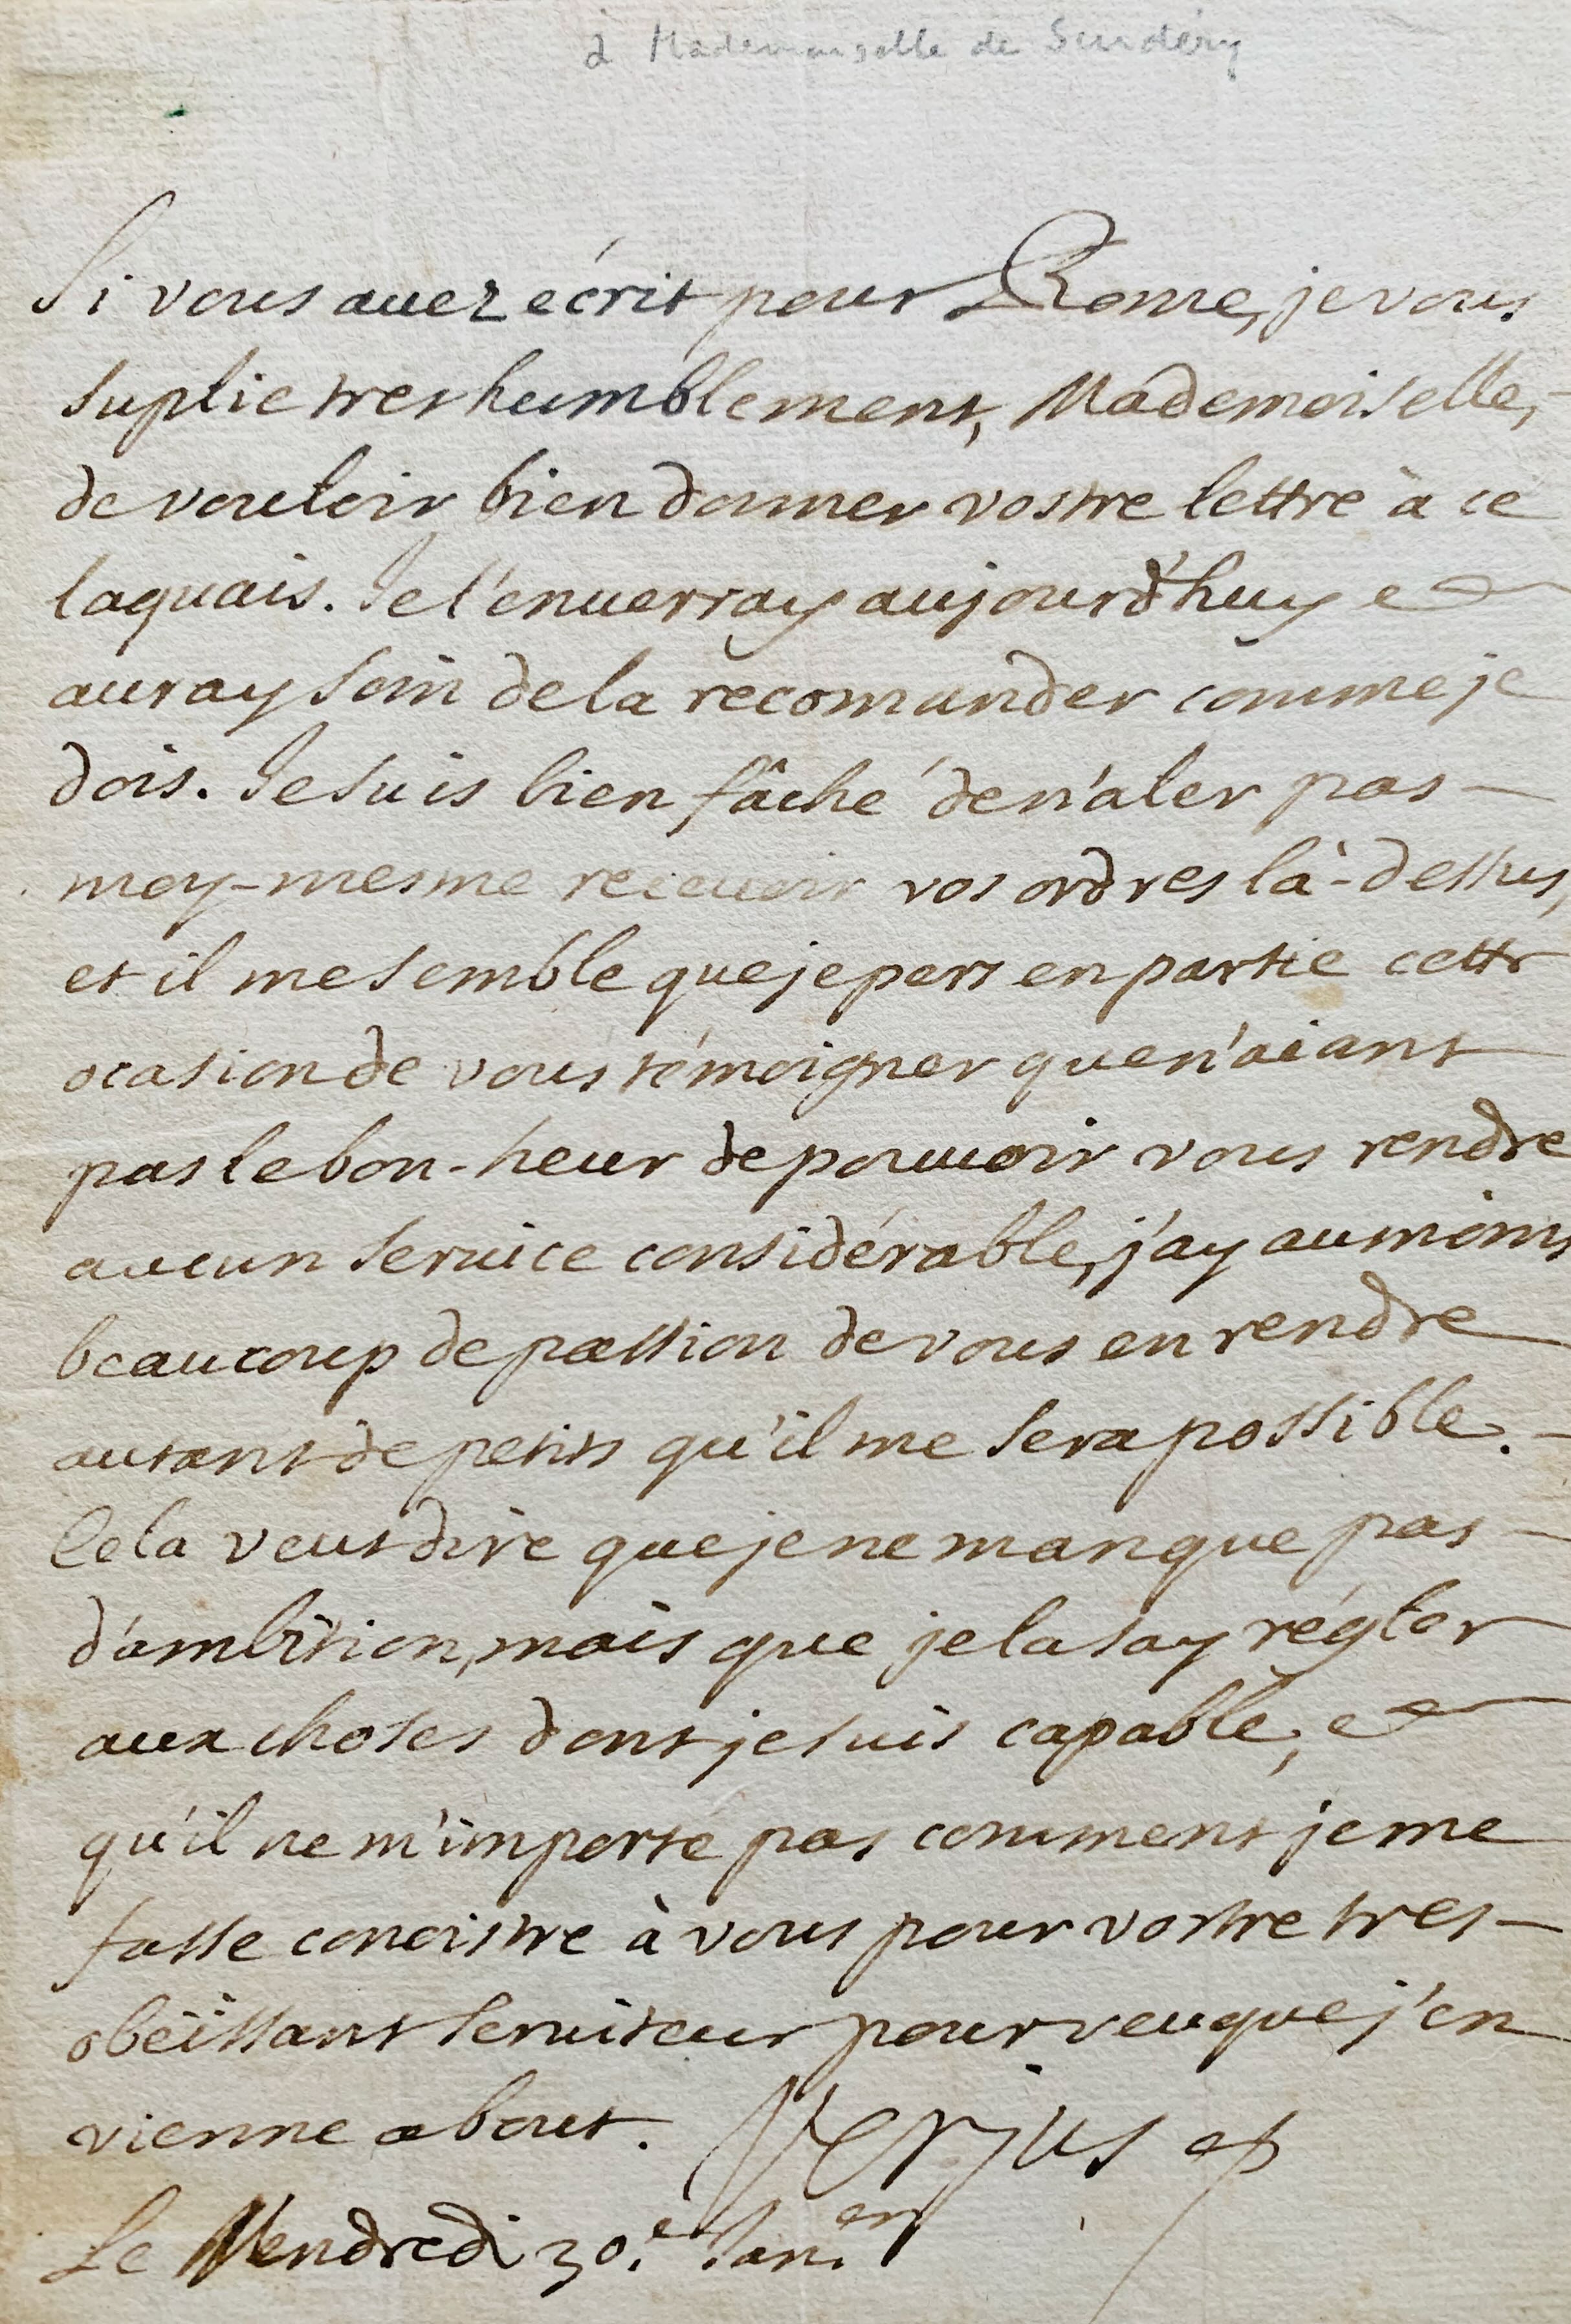 à Mademoiselle de Scudéry
Si vous auez écrit pour Rome, je vous
suplie tres humblement, Mademoiselle,
de vouloir bien donner vostre lettre à ce
laquais. Je l'enuerray aujourd'huy et
auray soin de la recomander comme je
dois. Je suis bien fâché de n'aler pas
moy-mesme receuoir vos ordres là-dessus,
et il me semble que je pers en partie cette
ocasion de vous témoigner que n'aiant
pas le bon-heur de pouuoir vous rendre
aucun seruice considérable, j'ay au moins
beaucoup de passion de vous en rendre
autant de petits qu'il me sera possible.
Cela veut dire que je ne manque pas
d'ambition, mais que je la say régler
aux choses dont je suis capable, et
qu'il ne m'importe pas comment je me
fasse conoistre à vous pour vostre tres-
obëissant seruiteur pourveu que j'en
vienne a bout. Verjus
Le Vendredi 30.e Jan.er